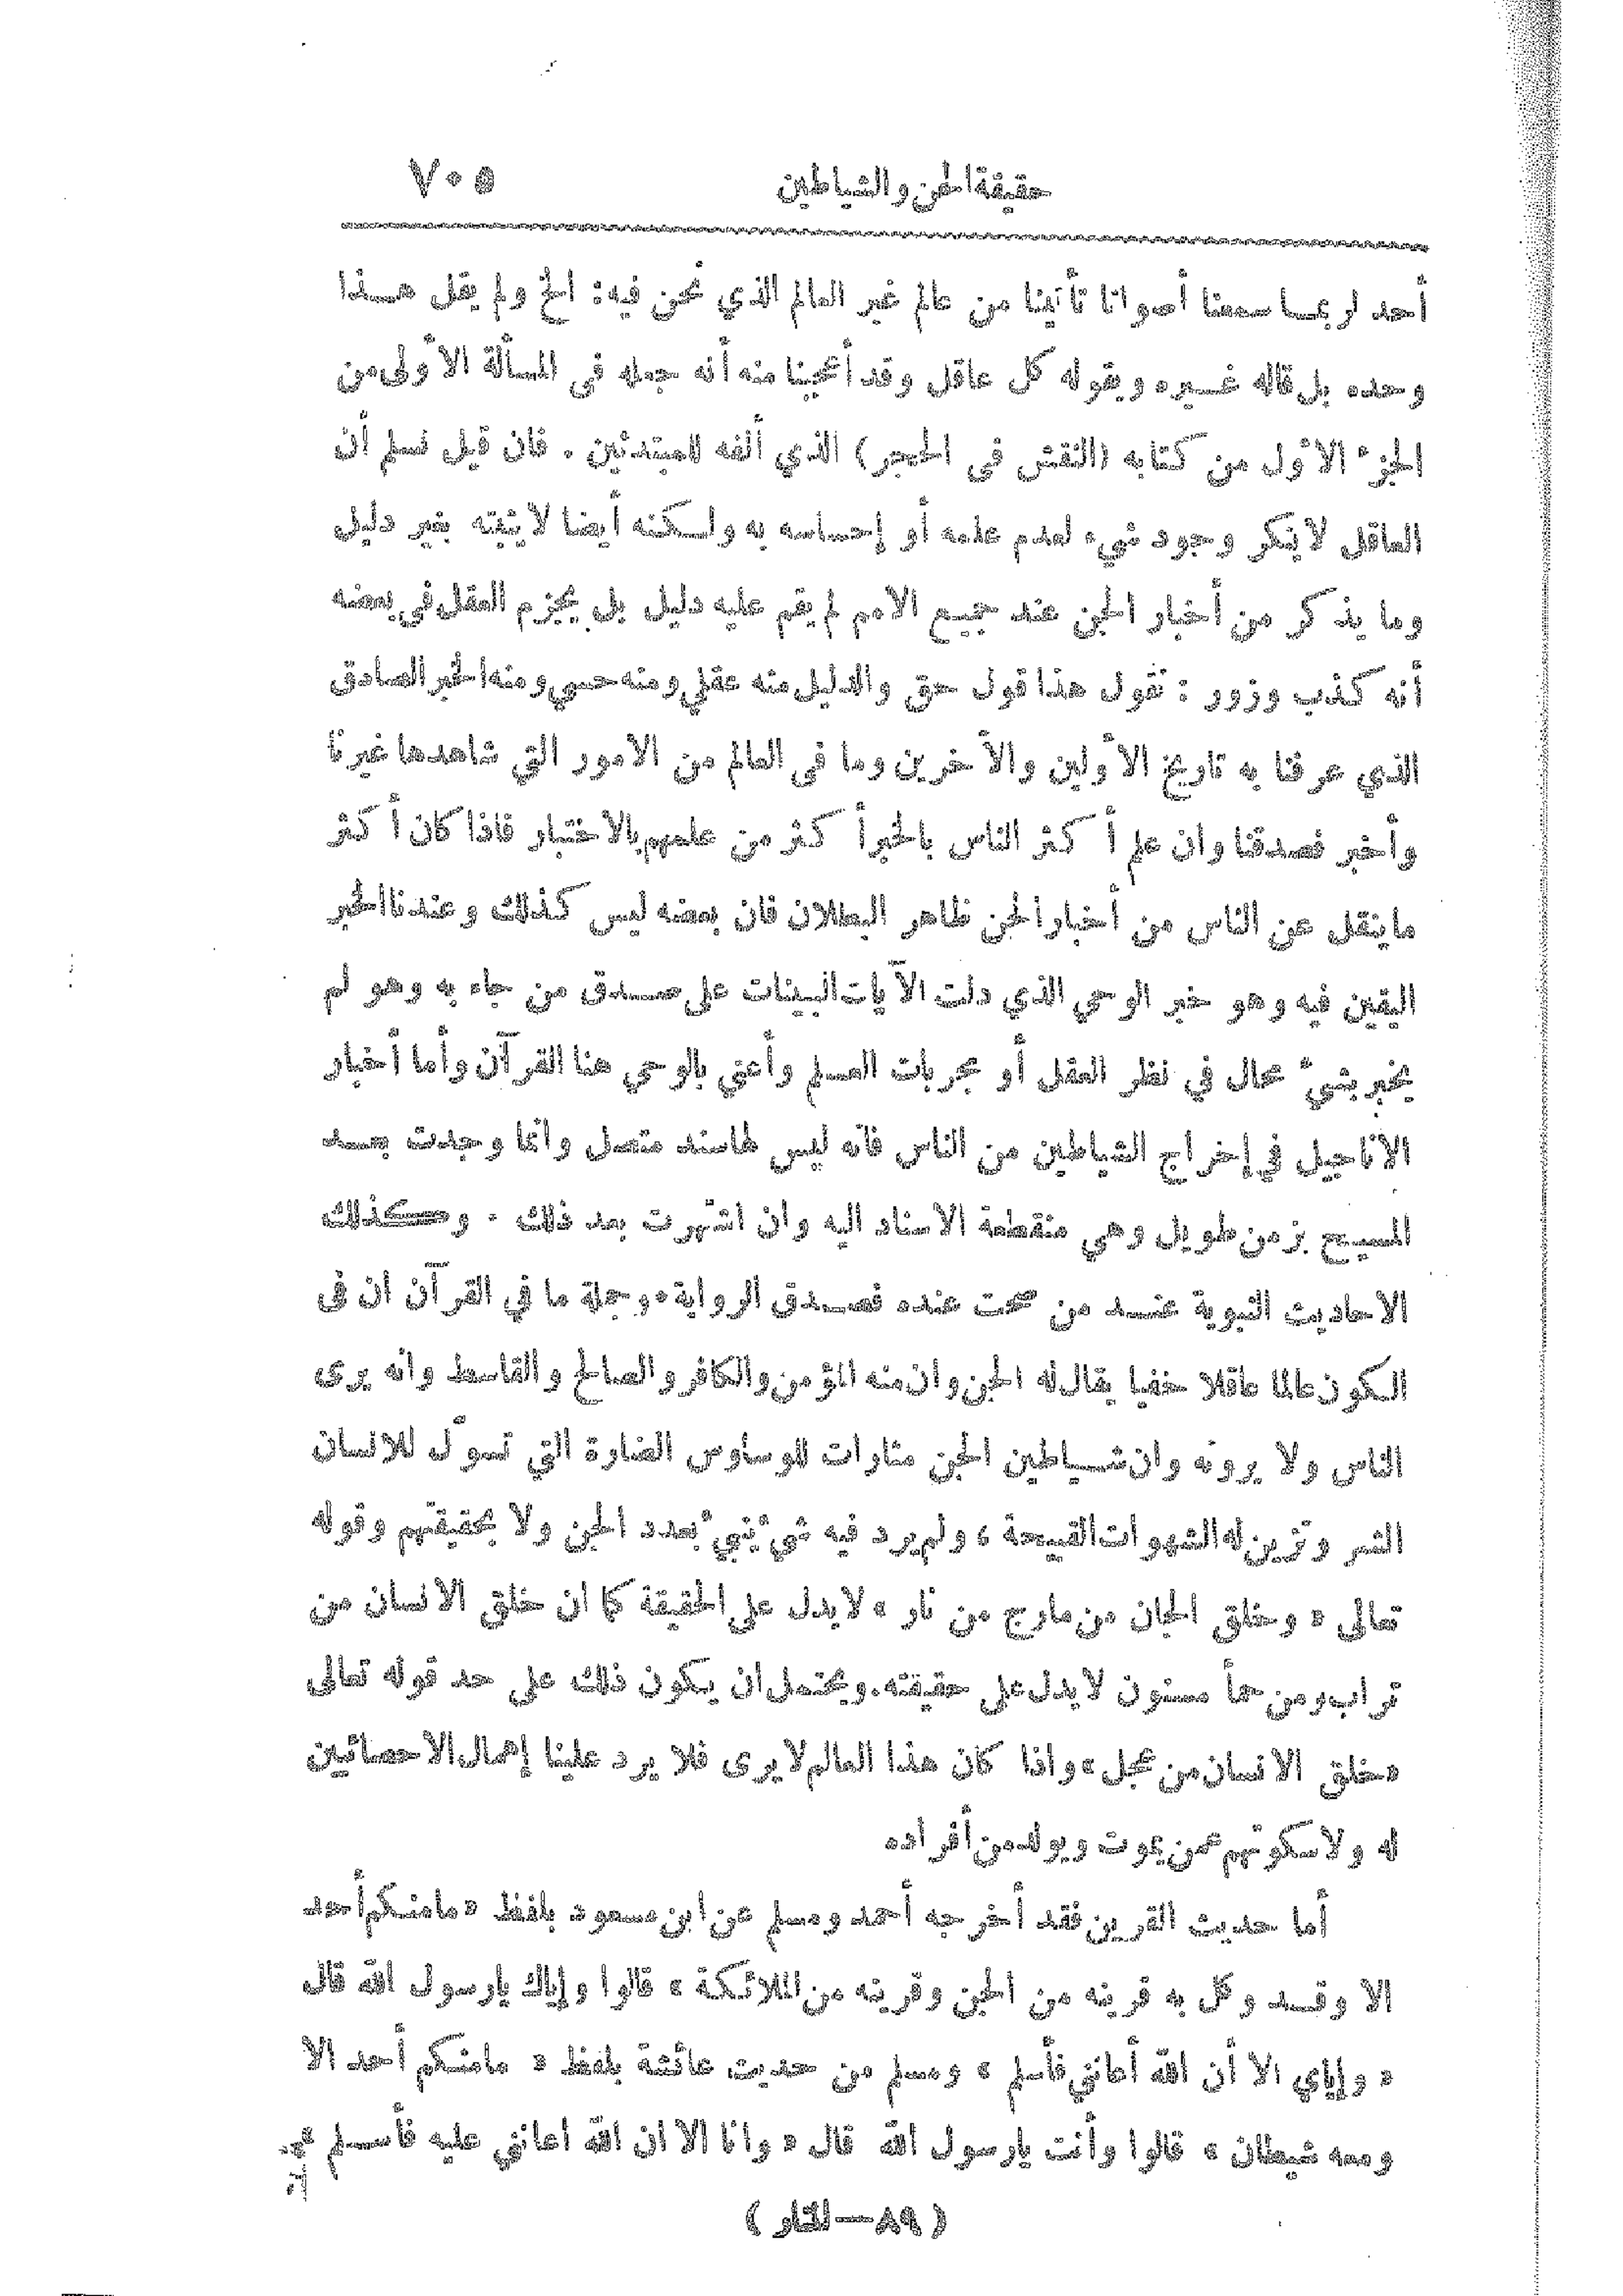 حقيقة الجن والشياطين ٧٠٥
أحد لربما سمعنا أصواتا تأتينا من عالم غير العالم الذي نحن فيه: الخ ولم يقل هذا
وحده بل قاله غيره ويقوله كل عاقل وقد أعجبنا منه أنه جعله فى المسألة الأولى من
الجزء الأول من كتابه (النقش فى الحجر) الذي ألفه للمبتدئين . فان قيل نسلم أن
العاقل لا ينكر وجود شيء لعدم علمه أو إحساسه به ولكنه أيضا لا يثبته بغير دليل
وما يذكر من أخبار الجن عند جميع الامم لم يقم عليه دليل بل يجزم العقل في بعضه
أنه كذب وزور : نقول هذا قول حق والدليل منه عقلي ومنه حسي ومنه الخبر الصادق
الذي عرفنا به تاريخ الأولين والآخرين وما فى العالم من الامور التي شاهدها غيرنا
وأخبر فصدقنا وان علم أكثر الناس بالخبر أكثر من علمهم بالاختبار فاذا كان أكثر
ما ينقل عن الناس من أخبار الجن ظاهر البطلان فان بعضه ليس كذلك وعندنا الخبر
اليقين فيه وهو خبر الوحي الذي دلت الآيات البينات على صدق من جاء به وهو لم
يخبر بشيء محال في نظر العقل أو مجربات العلم وأعني بالوحي هنا القرآن وأما أخبار
الاناجيل في إخراج الشياطين من الناس فانه ليس لها سند متصل وانما وجدت بعد
المسيح بزمن طويل وهي منقطعة الاسناد اليه وان اشتهرت بعد ذلك . وكذلك
الاحاديث النبوية عند من صحت عنده فصدق الرواية. وجملة ما في القرآن ان فى
الكون عالما عاقلا خفيا يقال له الجن وان منه المؤمن والكافر والصالح والقاسط وانه يرى
الناس ولا يرونه وان شياطين الجن مثارات للوساوس الضارة التي تسوّل للانسان
الشر وتزين له الشهوات القبيحة ، ولم يرد فيه شيء ينبيء بعدد الجن ولا بحقيقتهم وقوله
تعالى « وخلق الجان من مارج من نار » لا يدل على الحقيقة كما ان خلق الانسان من
تراب ومن حمأ مسنون لا يدل على حقيقته. ويحتمل ان يكون ذلك على حد قوله تعالى
« خلق الانسان من عجل » واذا كان هذا العالم لا يرى فلا يرد علينا إهمال الاحصائيين
له ولا سكوتهم عمن يموت ويولد من أفراده
أما حديث القرين فقد أخرجه أحمد ومسلم عن ابن مسعود بلفظ « ما منكم أحد
الا وقد وكل به قرينه من الجن وقرينه من الملائكة » قالوا وإياك يارسول الله قال
« وإياي الا أن الله أعانني فأسلم » ومسلم من حديث عائشة بلفظ « ما منكم أحد الا
ومعه شيطان » قالوا وأنت يارسول الله قال « وانا الا ان الله اعانني عليه فأسلم
(٨٩ — المنار)